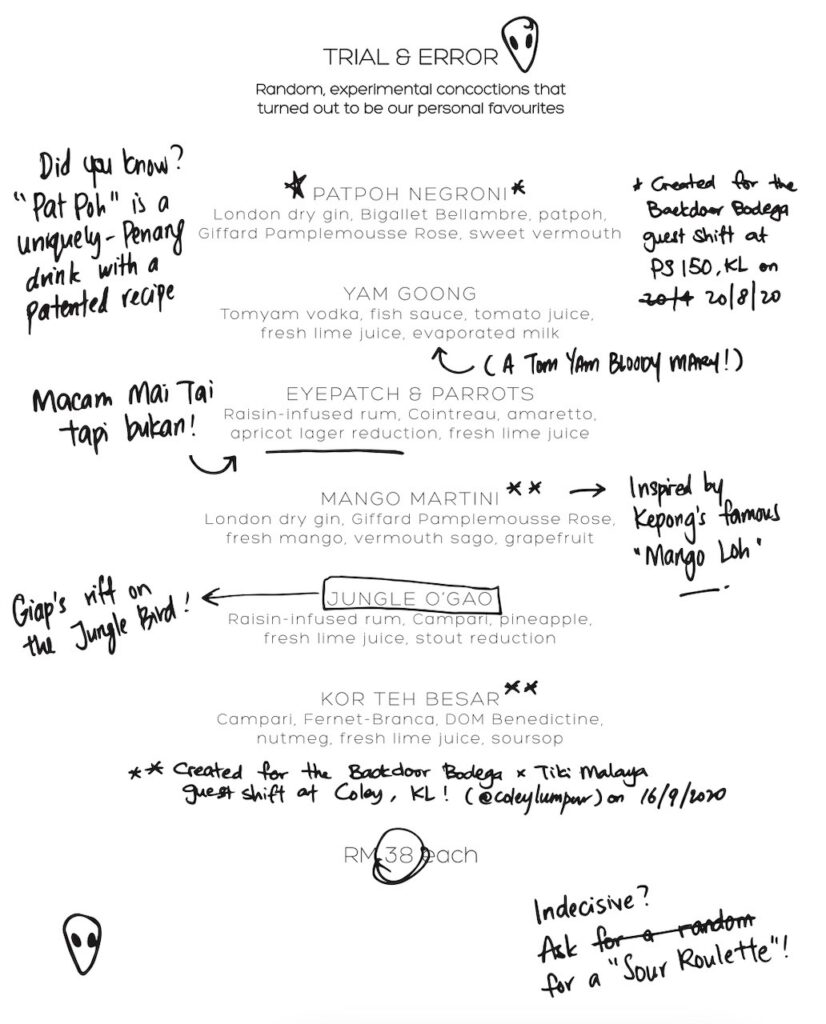 TRIAL & ERROR
Random, experimental concoctions that
turned out to be our personal favourites
Did you know?
"Pat Poh" is a
uniquely-Penang
drink with a
patented recipe
★ PATPOH NEGRONI*
London dry gin, Bigallet Bellambre, patpoh,
Giffard Pamplemousse Rose, sweet vermouth
* Created for the
Backdoor Bodega
guest shift at
PS150, KL on
20/4 20/8/20
YAM GOONG
Tomyam vodka, fish sauce, tomato juice,
fresh lime juice, evaporated milk
(A TOM YAM BLOODY MARY!)
Macam Mai Tai
tapi bukan!
EYEPATCH & PARROTS
Raisin-infused rum, Cointreau, amaretto,
apricot lager reduction, fresh lime juice
MANGO MARTINI**
London dry gin, Giffard Pamplemousse Rose,
fresh mango, vermouth sago, grapefruit
Inspired by
Kepong's famous
"Mango Loh"
Giap's riff on
the Jungle Bird!
JUNGLE O'GAO
Raisin-infused rum, Campari, pineapple,
fresh lime juice, stout reduction
KOR TEH BESAR**
Campari, Fernet-Branca, DOM Benedictine,
nutmeg, fresh lime juice, soursop
** Created for the Backdoor Bodega x Tiki Malaya
guest shift at Coley, KL! (@coleylumpur) on 16/9/2020
RM 38 each
Indecisive?
Ask for a random
for a "Sour Roulette"!